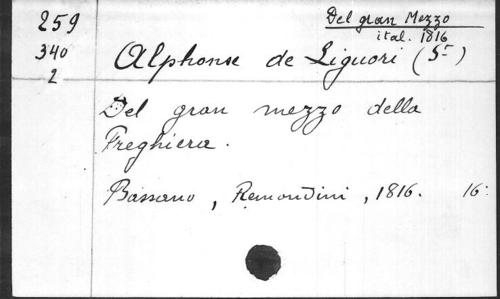 259
340
2
Del gran Mezzo
ital. 1816
Alphonse de Liguori (St)
Del gran mezzo della
Preghiera.
Bassano, Remondini, 1816. 16: